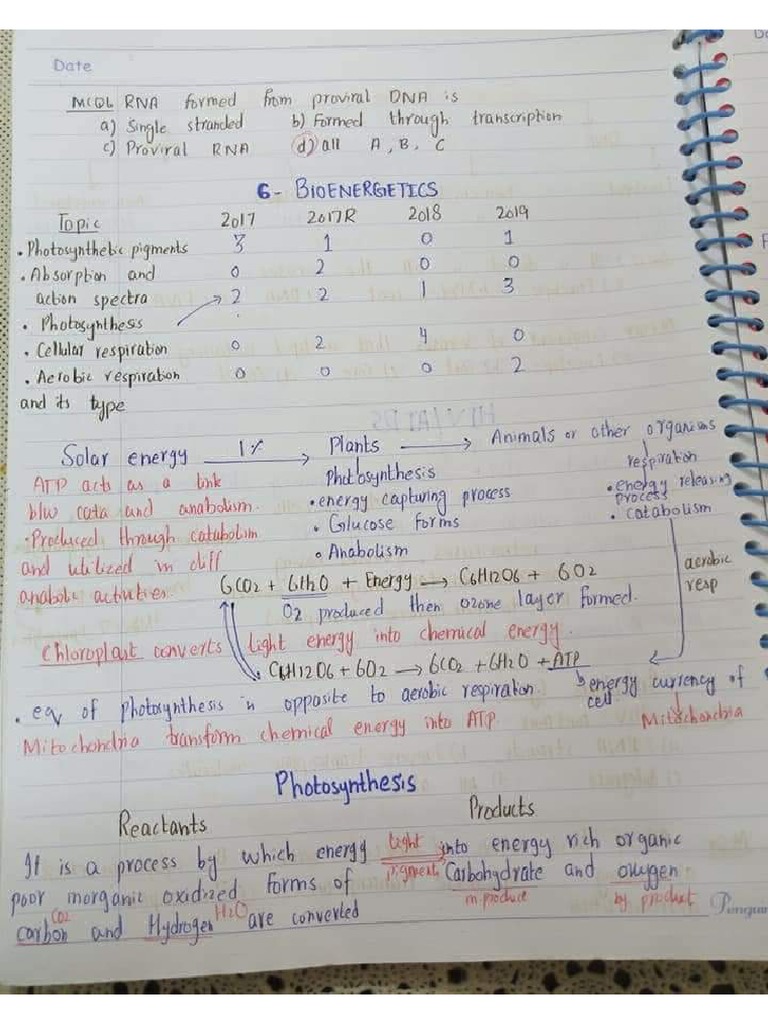 Date
MCQ1. RNA formed from proviral DNA is
a) Single stranded b) Formed through transcription
c) Proviral RNA d) all A, B, C
6- BIOENERGETICS
Topic 2017 2017R 2018 2019
• Photosynthetic pigments 3 1 0 1
• Absorption and 0 2 0 0
action spectra
• Photosynthesis → 2 2 1 3
• Cellular respiration 0 2 4 0
• Aerobic respiration 0 0 0 2
and its type
Solar energy 1% → Plants → Animals or other organisms
Photosynthesis
• energy capturing process
• Glucose forms
• Anabolism
respiration
• energy releasing
process
• catabolism
aerobic
resp
ATP acts as a link
b/w cata and anabolism.
• Produced through catabolism
and utilized in diff
anabolic activities
6CO2 + 6H2O + Energy → C6H12O6 + 6O2
O2 produced then ozone layer formed.
Chloroplast converts light energy into chemical energy.
C6H12O6 + 6O2 → 6CO2 + 6H2O + ATP
energy currency of
cell
Mitochondria
• eq of photosynthesis in opposite to aerobic respiration.
Mitochondria transform chemical energy into ATP
Photosynthesis
Reactants Products
It is a process by which energy light into energy rich organic
poor inorganic oxidized forms of pigment Carbohydrate and oxygen
CO2 H2O m.produce by product
carbon and Hydrogen are converted